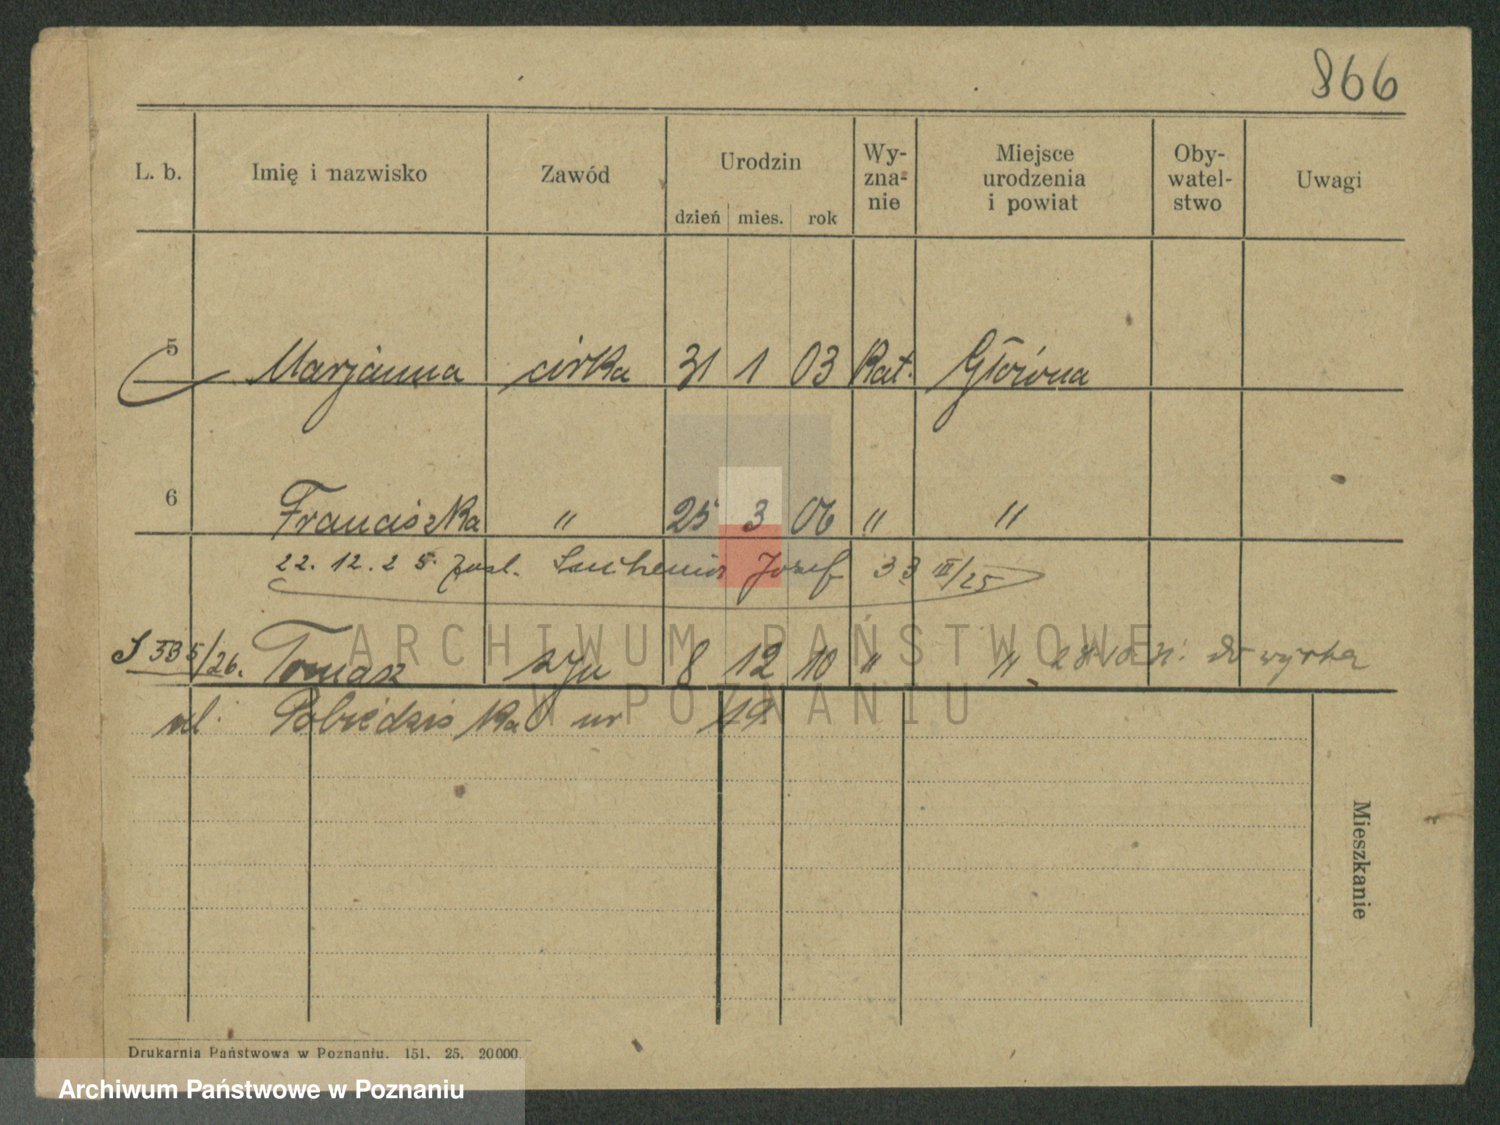 866
L. b. Imię i nazwisko Zawód Urodzin dzień mies. rok Wy-zna-nie Miejsce urodzenia i powiat Oby-watel-stwo Uwagi
5 Marjanna córka 31 1 03 Kat. Główna
6 Franciszka " 25 3 06 " "
22. 12. 25. zasl. Józef 33 III/25
335/26. Tomasz syn 8 12 10 " "
ul. Pobiedziska nr 19
Mieszkanie
Drukarnia Państwowa w Poznaniu. 151. 25. 20000.
ARCHIWUM PAŃSTWOWE
W POZNANIU
Archiwum Państwowe w Poznaniu